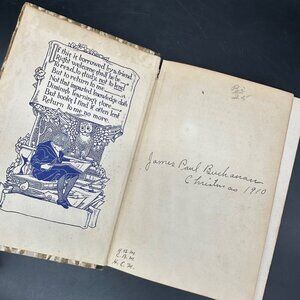 If this is borrowed by a friend
Right welcome shall he be
To read, to study, not to lend
But to return to me.
Not that imparted knowledge doth
Diminish learning's store
But books I find if often lent
Return to me no more.
James Paul Buchanan
Christmas 1910